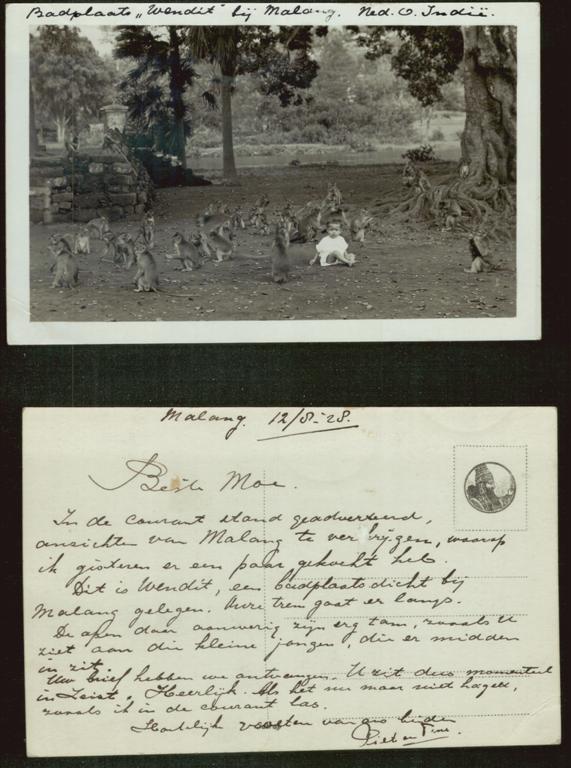 Badplaats „Wendit" bij Malang. Ned. O. Indië.
Malang. 12/8-28.
Beste Moe.
In de courant stond geadverteerd,
ansichten van Malang te verkrijgen, waarop
ik gisteren er een paar gekocht heb.
Dit is Wendit, een badplaats dicht bij
Malang gelegen. trem gaat er langs.
De apen daar aanwezig zijn erg tam, zooals U
ziet aan die kleine jongen, die er midden
in zit.
Uw brief hebben we ontvangen. U zit dus momenteel
in Zeist. Heerlijk. Als het nu maar niet hagelt,
zooals ik in de courant las.
Hartelijk van ons beiden
Piet en